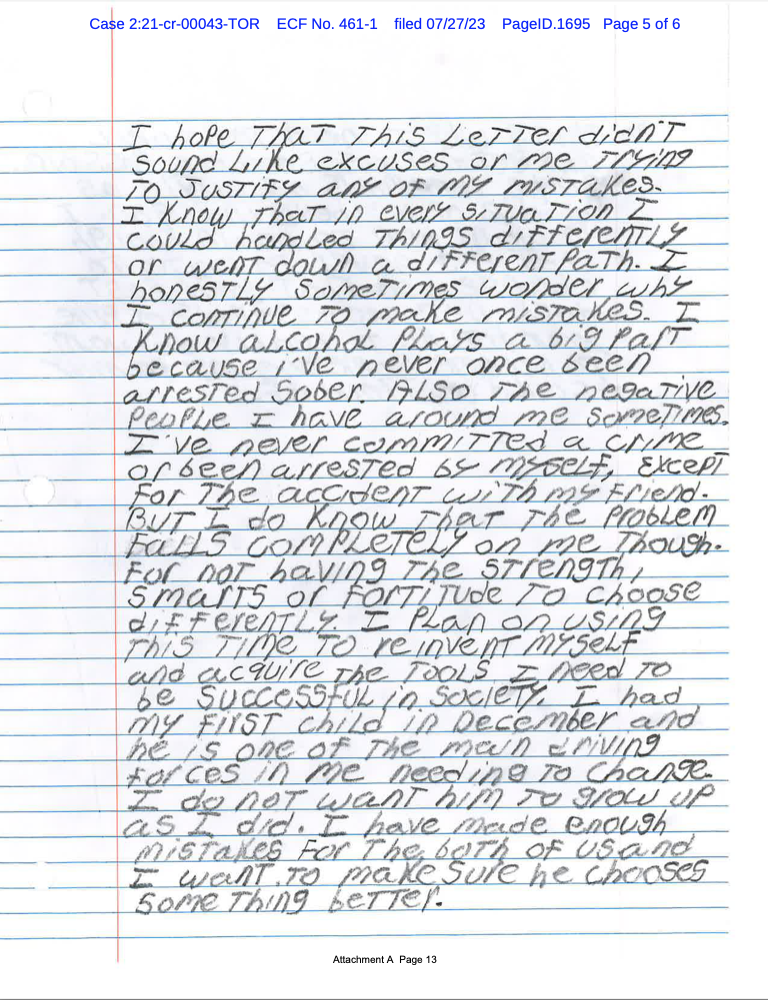 Case 2:21-cr-00043-TOR ECF No. 461-1 filed 07/27/23 PageID.1695 Page 5 of 6
I hope that this letter didn't
sound like excuses or me trying
to justify any of my mistakes.
I know that in every situation I
could handled things differently
or went down a different path. I
honestly sometimes wonder why
I continue to make mistakes. I
know alcohol plays a big part
because i've never once been
arrested sober. Also the negative
people I have around me sometimes.
I've never committed a crime
or been arrested by myself, except
for the accident with my friend.
But I do know that the problem
falls completely on me though.
For not having the strength,
smarts or fortitude to choose
differently. I plan on using
this time to reinvent myself
and acquire the tools I need to
be successful in society. I had
my first child in December and
he is one of the main driving
forces in me needing to change.
I do not want him to grow up
as I did. I have made enough
mistakes for the both of us and
I want to make sure he chooses
something better.
Attachment A Page 13